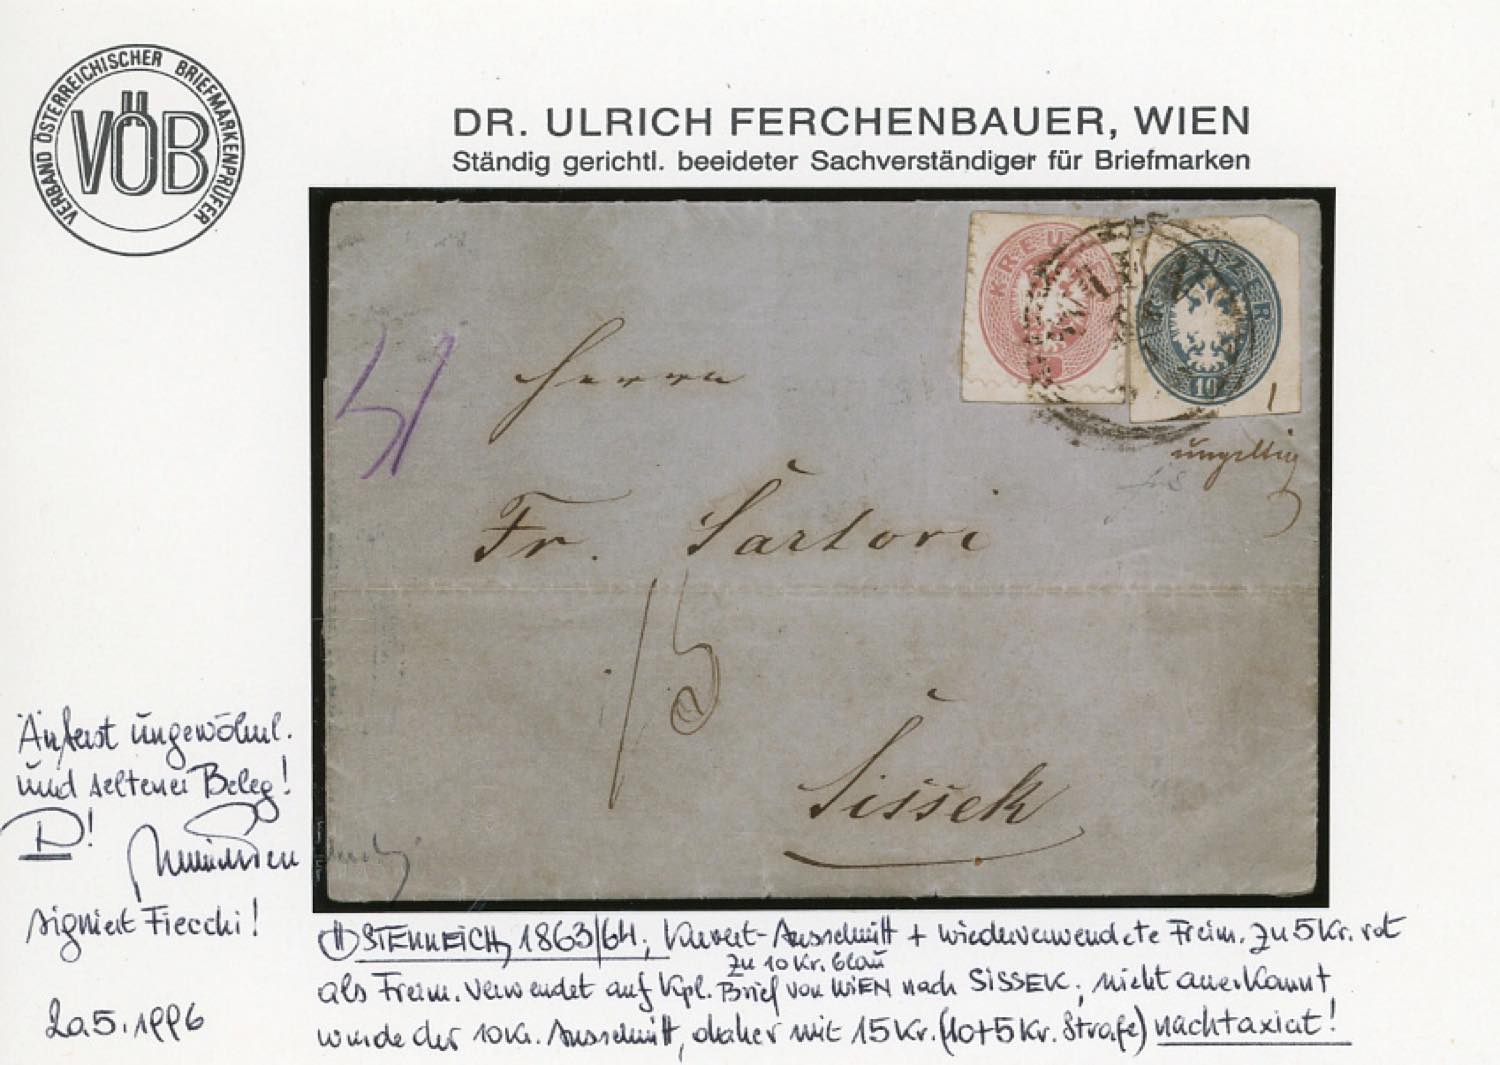 VERBAND ÖSTERREICHISCHER BRIEFMARKENPRÜFER
VÖB
DR. ULRICH FERCHENBAUER, WIEN
Ständig gerichtl. beeideter Sachverständiger für Briefmarken
KREU
UZER
10
WIEN
ungültig
Herrn
Fr. Sartori
15
Sissek
Äußerst ungewöhnl.
und seltener Beleg!
D!
signiert Fiecchi!
2a5.1996
ÖSTERREICH, 1863/64; Kuvert-Ausschnitt + wiederverwendete Freim. zu 5 Kr. rot
zu 10 Kr. blau
als Freim. verwendet auf kpl. Brief von WIEN nach SISSEK; nicht anerkannt
wurde der 10 Kr. Ausschnitt, daher mit 15 Kr. (10+5 Kr. Strafe) nachtaxiert!